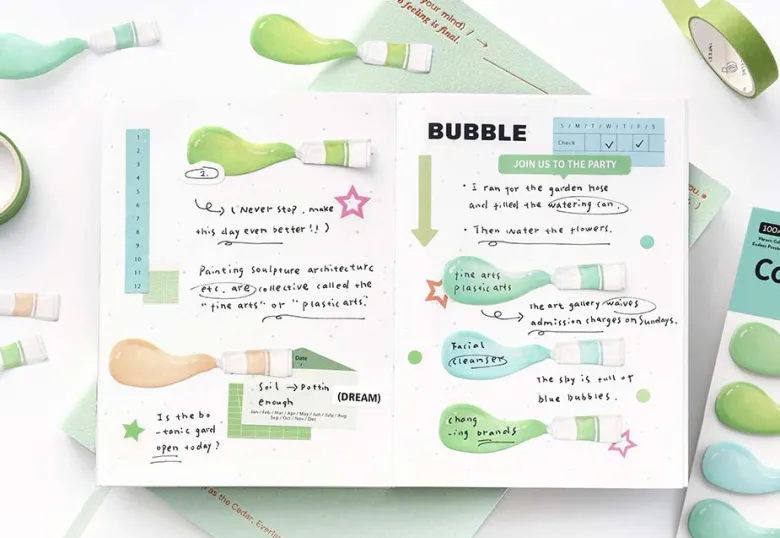 your mind) / →
feeling is final.
1
2
3
4
5
6
7
8
9
10
11
12
2.
( Never stop. make
this day even better!! )
Painting sculpture architecture
etc. are collective called the
"fine arts" or "plastic arts."
Date
Soil → Pottin
enough
(DREAM)
Jan / Feb / Mar / Apr / May / Jun / July / Aug
Sep / Oct / Nov / Dec
Is the bo
-tanic gard
open today?
BUBBLE
S / M / T / W / T / F / S
Check
JOIN US TO THE PARTY
• I ran for the garden hose
and filled the watering can.
• Then water the flowers.
fine arts
plastic arts
The art gallery waives
admission charges on Sundays.
Facial
cleanser
The sky is full of
blue bubbles.
Chang
-ing brands
as the Cedar, Everla
100
Co